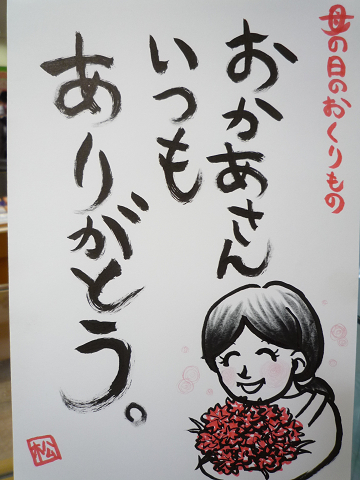 母の日のおくりもの
おかあさん
いつも
ありがとう。
松